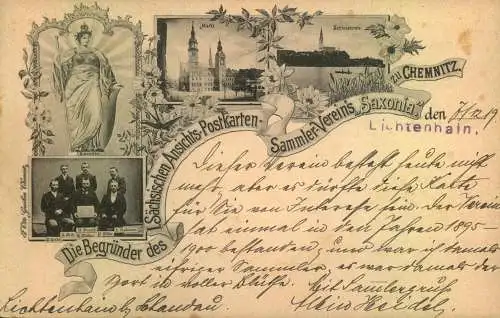 Markt
Schlossteich
Die Begründer des Sächsischen Ansichts-Postkarten-Sammler-Vereins „Saxonia“, zu CHEMNITZ.
den 7/12 19
Lichtenhain.
Dieser Verein besteht heute nicht
mehr, aber es dürfte diese Karte
für Sie von Interesse sein. Der Verein
hat einmal in den Jahren 1895-
1900 bestanden, und war ich damals
eifriger Sammler, es war damals der
Sport in voller Blüthe. Mit Sammlergruß
Lichtenhain b/ Schandau.